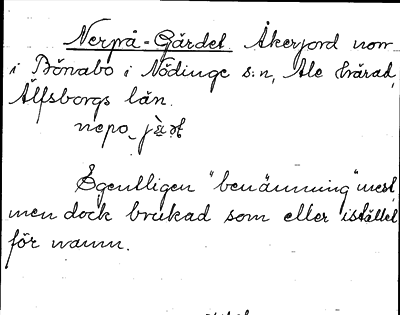 Nerpå-Gärdet Åkerjord norr
i Bönabo i Nödinge s:n, Ale härad,
Älfsborgs län.
Egentligen "benämning" mest,
men dock brukad som eller istället
för namn.